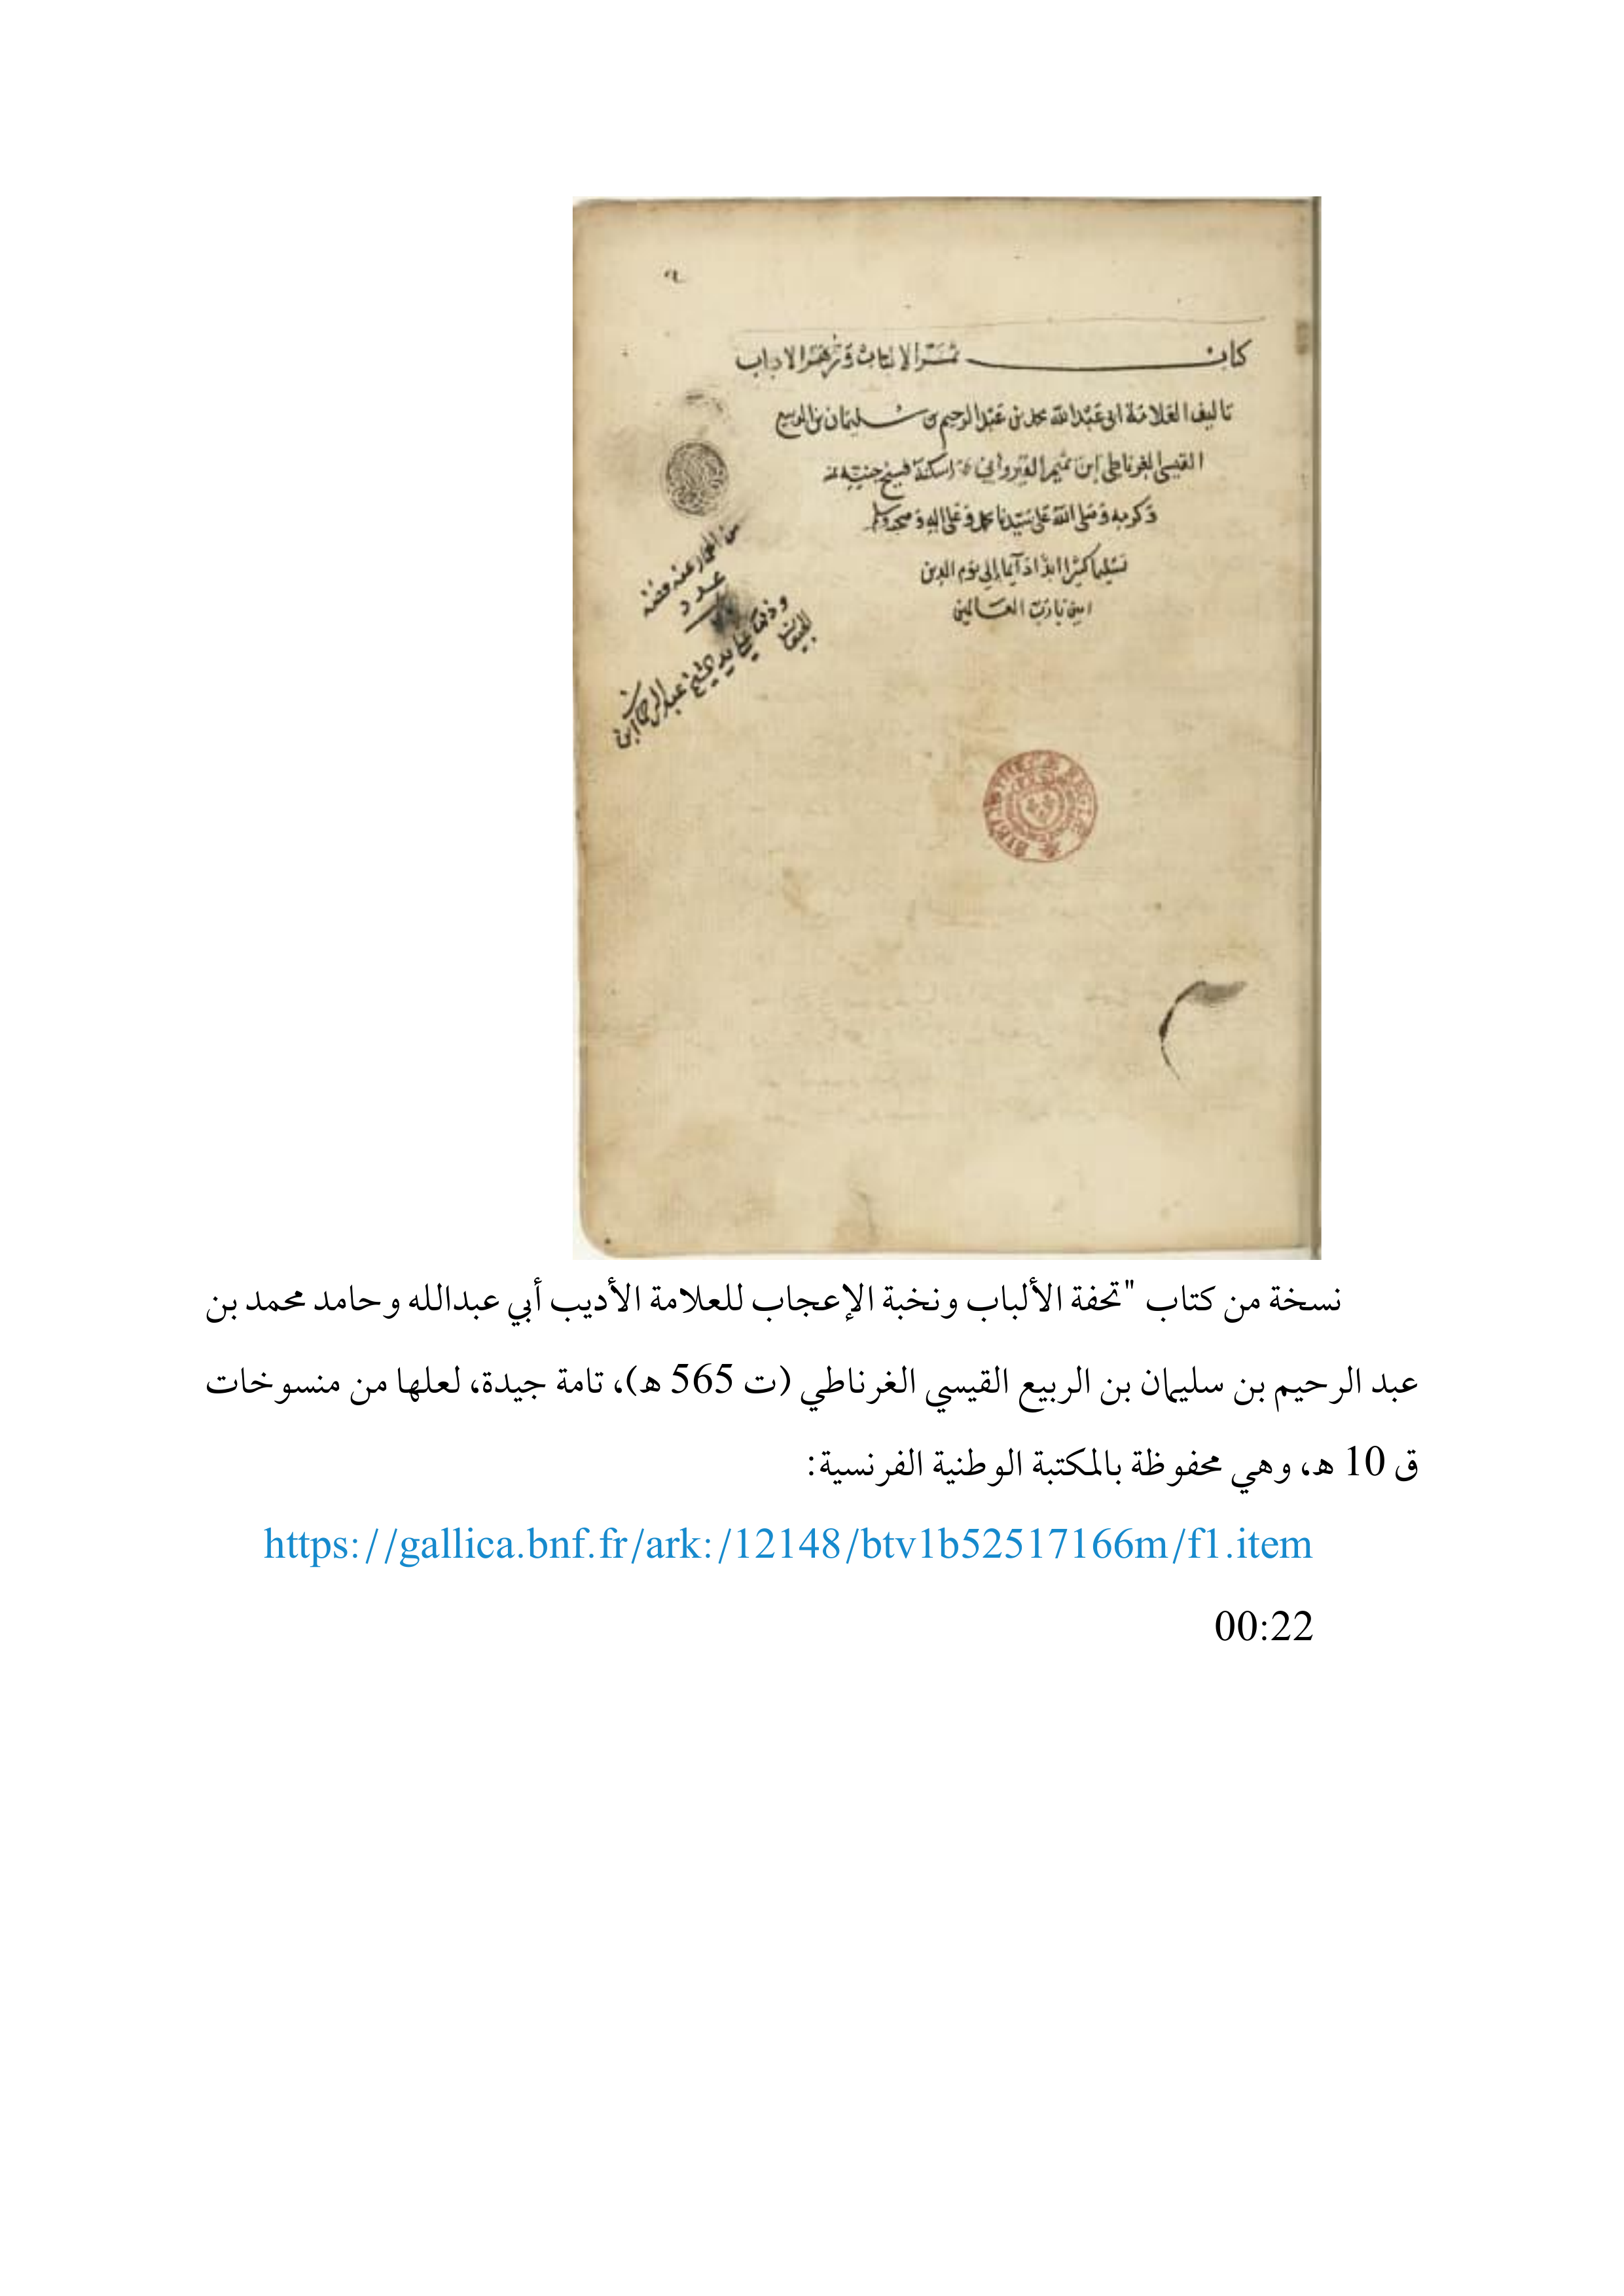 كتاب الالباب و الاداب
تاليف العلامة ابى عبد الله محمد بن عبد الرحيم بن سليمان بن الربيع
القيسى الغرناطى ابن تميم القيروانى اسكنه فسيح جنته بمنه
وكرمه وصلى الله على سيدنا محمد وعلى اله وصحبه وسلم
تسليما كثيرا ابدا دآيما إلى يوم الدين
امين يارب العالمين
عدد
الشيخ عبد الرحمان ابن
نسخة من كتاب "تحفة الألباب ونخبة الإعجاب للعلامة الأديب أبي عبدالله وحامد محمد بن
عبد الرحيم بن سليمان بن الربيع القيسي الغرناطي (ت 565 هـ)، تامة جيدة، لعلها من منسوخات
ق 10 هـ، وهي محفوظة بالمكتبة الوطنية الفرنسية:
https://gallica.bnf.fr/ark:/12148/btv1b52517166m/f1.item
00:22